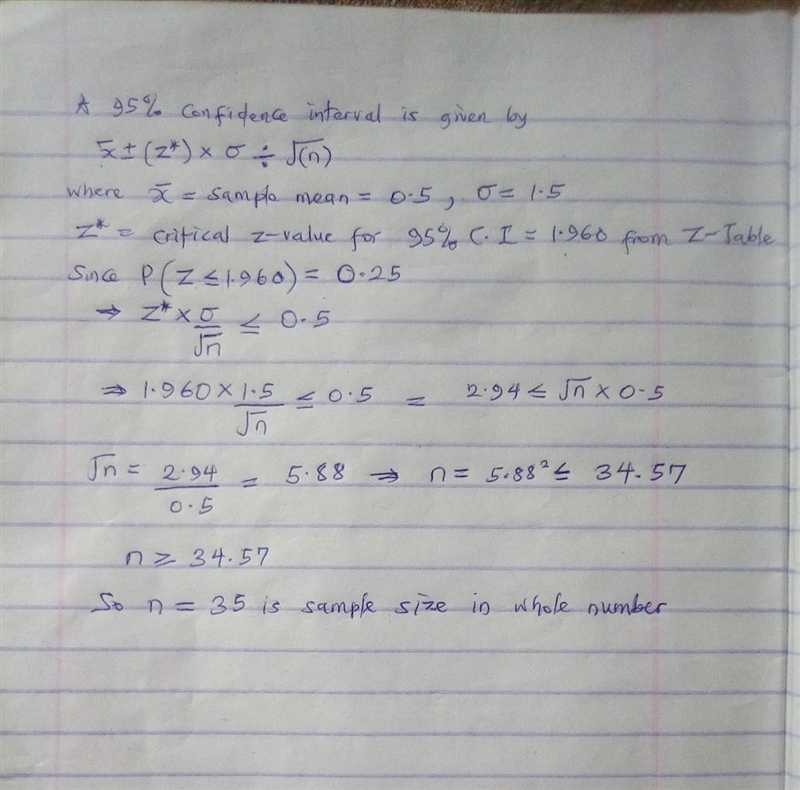 A 95% confidence interval is given by
x̄ ± (Z*) × σ ÷ √(n)
where x̄ = sample mean = 0.5, σ = 1.5
Z* = critical z-value for 95% C.I = 1.960 from Z-Table
Since P(Z ≤ 1.960) = 0.25
⇒ Z* × σ/√n ≤ 0.5
⇒ 1.960 × 1.5/√n ≤ 0.5 = 2.94 ≤ √n × 0.5
√n = 2.94/0.5 = 5.88 ⇒ n = 5.88² ≤ 34.57
n ≥ 34.57
So n = 35 is sample size in whole number